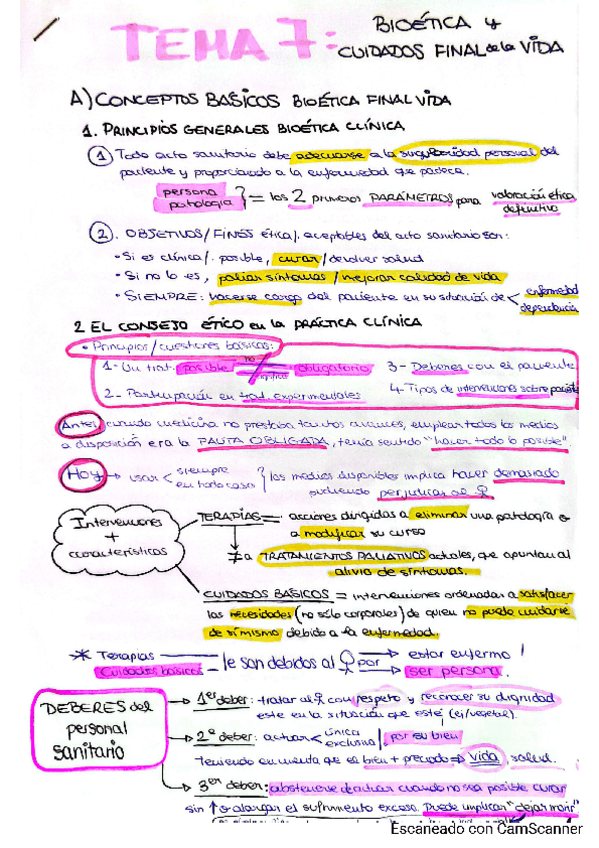 TEMA 7: BIOÉTICA y
CUIDADOS FINAL de la VIDA
A) CONCEPTOS BASICOS BIOÉTICA FINAL VIDA
1. PRINCIPIOS GENERALES BIOÉTICA CLÍNICA
1 Todo acto sanitario debe adecuarse a la singularidad personal del
paciente y proporcionado a la enfermedad que padece.
persona
patología } = los 2 primeros PARÁMETROS para valoración ética
definitivo
2. OBJETIVOS/FINES ética/. aceptables del acto sanitario son:
• Si es clínica/. posible, curar/devolver salud
• Si no lo es, paliar síntomas/mejorar calidad de vida
• SIEMPRE: hacerse cargo del paciente en su situación de < enfermedad
dependencia
2 EL CONSEJO ÉTICO en la PRÁCTICA CLÍNICA
• Principios/cuestiones básicas:
1- Un trat. posible no significa obligatorio
3- Deberes con el paciente
2- Participación en trat. experimentales
4- Tipos de intervenciones sobre paciente
Antes, cuando medicina no prestaba tantos avances, emplear todos los medios
a disposición era la PAUTA OBLIGADA, tenía sentido "hacer todo lo posible".
Hoy → usar < siempre
en todo caso } los medios disponibles implica hacer demasiado
pudiendo perjudicar al
Intervenciones
+
características
TERAPIAS = acciones dirigidas a eliminar una patología o
a modificar su curso
≠ a TRATAMIENTOS PALIATIVOS actuales, que apuntan al
alivio de síntomas.
CUIDADOS BÁSICOS = intervenciones ordenadas a satisfacer
las necesidades (no sólo corporales) de quien no puede cuidarse
de sí mismo debido a la enfermedad.
* Terapias → estar enfermo
Cuidados básicos = le son debidos al por → ser persona.
DEBERES del
personal
sanitario
1er deber: tratar al con respeto y reconocer su dignidad
este en la situación que esté (ej/vegetal).
2º deber: actuar < única
exclusiva/. por su bien
Teniendo en cuenta que el bien + preciado ⇒ vida, salud.
3er deber: abstenerse de actuar cuando no sea posible curar
sin ↑ o alargar el sufrimiento exceso. Puede implicar "dejar morir"
Escaneado con CamScanner